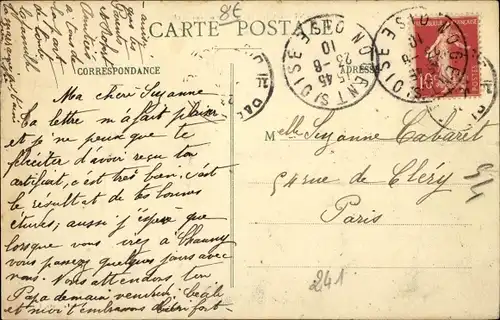 8€
CARTE POSTALE
CORRESPONDANCE
ADRESSE
NOGENT S/ OISE
15 45
10 - 8
23
OISE
10
Ma chère Suzanne
Ta lettre m'a fait plaisir
et je ne peux que te
féliciter d'avoir reçu ton
certificat, c'est très bien, c'est
le résultat de tes bonnes
études, aussi j'espère que
lorsque vous irez à Chauny
vous passerez quelques jours avec
nous. Nous attendons ton
Papa demain vendredi
et moi t'embrassons bien fort
ainsi
que tes
et
André
de la part
de toute
la famille
Melle Suzanne Cabaret
54 rue de Cléry
Paris
54
241